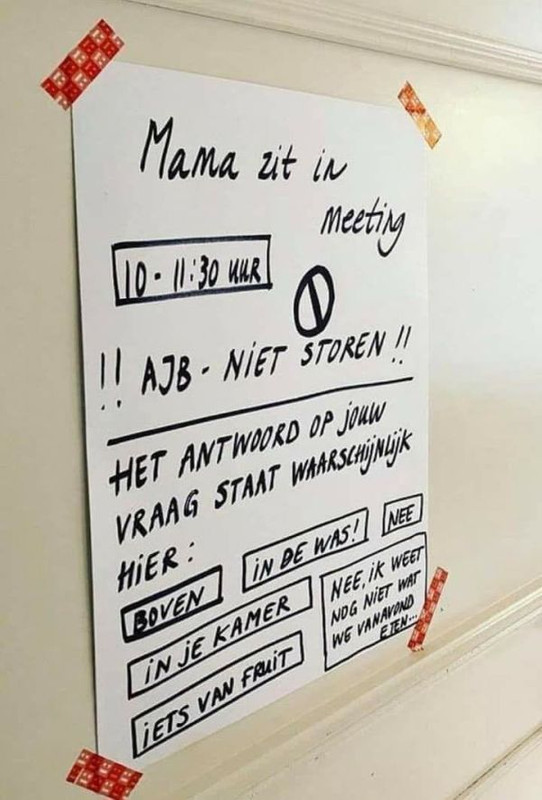 Mama zit in
meeting
10 - 11:30 UUR
!! AJB - NIET STOREN !!
HET ANTWOORD OP JOUW
VRAAG STAAT WAARSCHIJNLIJK
HIER:
BOVEN
IN DE WAS!
NEE
IN JE KAMER
IETS VAN FRUIT
NEE, IK WEET
NOG NIET WAT
WE VANAVOND
ETEN...